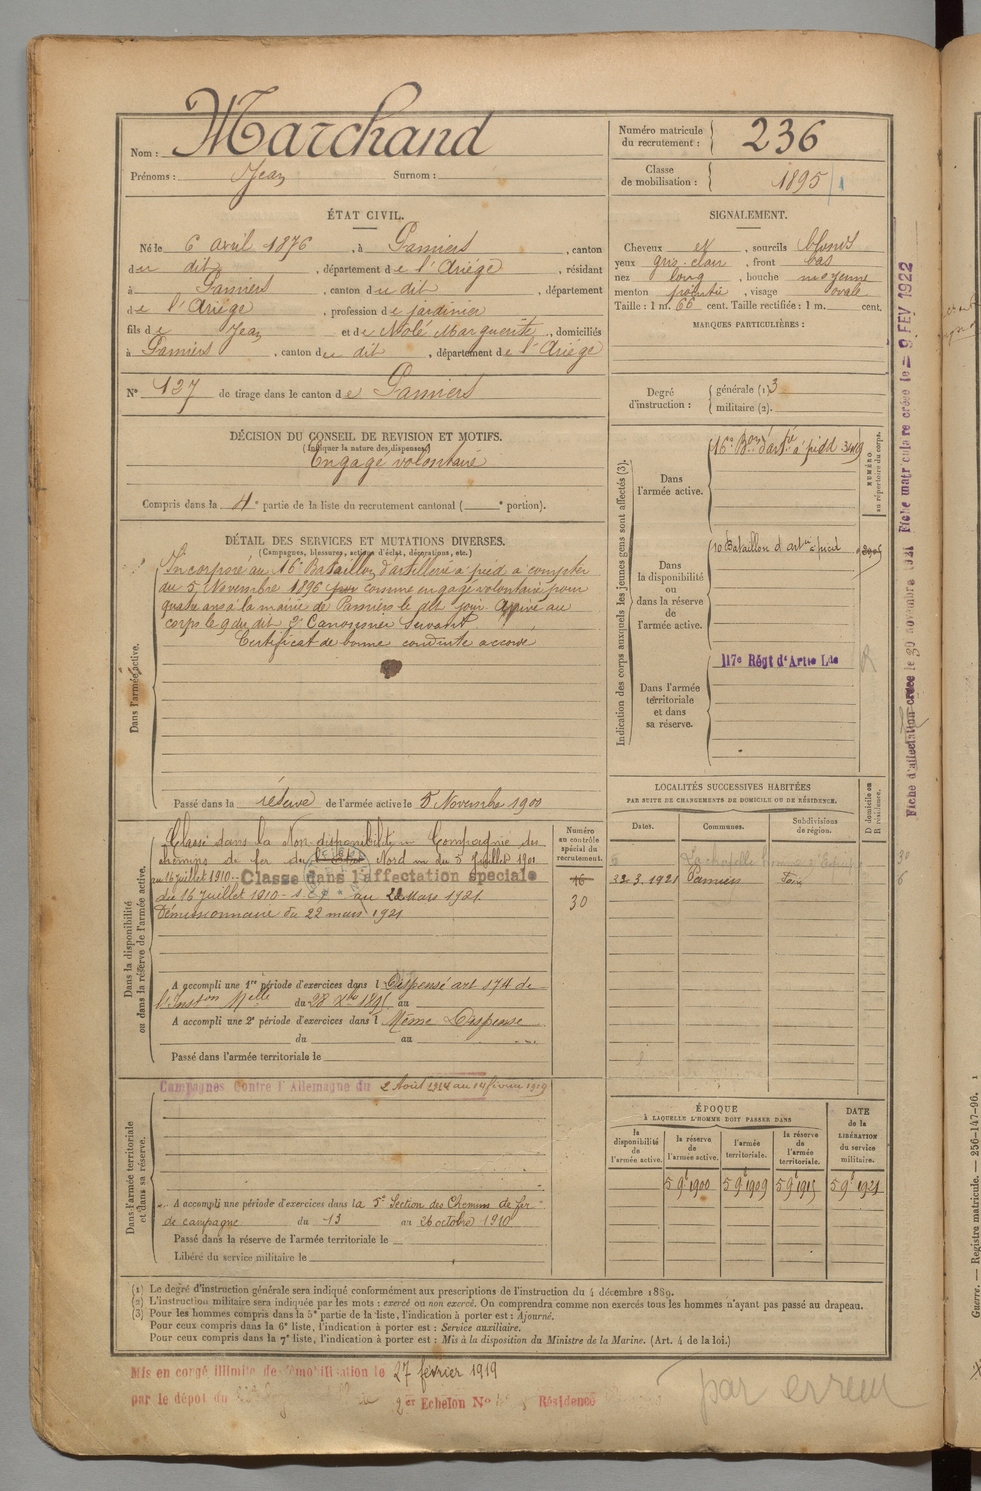 Nom : Marchand
Prénoms : Jean Surnom :
Numéro matricule du recrutement : 236
Classe de mobilisation : 1895 / 1
ÉTAT CIVIL.
Né le 6 avril 1876, à Pamiers, canton
du dit, département de l'Ariége, résidant
à Pamiers, canton du dit, département
de l'Ariége, profession de jardinier
fils de Jean et de Molé Marguerite, domiciliés
à Pamiers, canton du dit, département de l'Ariége
N° 127 de tirage dans le canton de Pamiers
SIGNALEMENT.
Cheveux et, sourcils blonds
yeux gris-clair, front bas
nez long, bouche moyenne
menton pointu, visage ovale
Taille : 1 m. 66 cent. Taille rectifiée : 1 m. cent.
MARQUES PARTICULIÈRES :
Degré d'instruction : générale (1) 3
militaire (2).
DÉCISION DU CONSEIL DE REVISION ET MOTIFS.
(Indiquer la nature des dispenses.)
Engagé volontaire
Compris dans la 4e partie de la liste du recrutement cantonal ( e portion).
DÉTAIL DES SERVICES ET MUTATIONS DIVERSES.
(Campagnes, blessures, actions d'éclat, décorations, etc.)
Dans l'armée active.
Incorporé au 16e Bataillon d'artillerie à pied à compter
du 5 Novembre 1896 comme engagé volontaire pour
quatre ans à la mairie de Pamiers le dit jour. Arrivé au
corps le 9 du dit 2e Canonnier Servant
Certificat de bonne conduite accordé
Passé dans la réserve de l'armée active le 5 Novembre 1900
Indication des corps auxquels les jeunes gens sont affectés (3).
NUMÉRO au répertoire du corps.
Dans l'armée active.
16e Bon d'artie à pied 3449
Dans la disponibilité ou dans la réserve de l'armée active.
10 Bataillon d'artie à pied
Dans l'armée territoriale et dans sa réserve.
117e Régt d'Artie Lde
Fiche d'affectation créée le 30 novembre 1921 Fiche matriculaire créée le = 9 FEV 1922
Dans la disponibilité ou dans la réserve de l'armée active.
Classé dans la Non disponibilité Compagnie des
chemins de fer du Nord du 5 Juillet 1901
au 16 juillet 1910.
Classé dans l'affectation spéciale
du 16 Juillet 1910 au 22 Mars 1921
Démissionnaire du 22 mars 1921
Numéro en contrôle spécial du recrutement.
16
30
A accompli une 1re période d'exercices dans l Dispensé art 174 de
l'Inston Melle du 28 Xbre 1895 au
A accompli une 2e période d'exercices dans l Même Dispense
du au
Passé dans l'armée territoriale le
LOCALITÉS SUCCESSIVES HABITÉES
PAR SUITE DE CHANGEMENTS DE DOMICILE OU DE RÉSIDENCE.
D domicile ou R résidence.
Dates. Communes. Subdivisions de région.
22.3.1921 Pamiers Foix
Dans l'armée territoriale et dans sa réserve.
Campagnes Contre l'Allemagne du 2 Août 1914 au 14 février 1919
A accompli une période d'exercices dans la 5e Section des Chemins de fer
de campagne du 13 au 26 octobre 1910
Passé dans la réserve de l'armée territoriale le
Libéré du service militaire le
ÉPOQUE
À LAQUELLE L'HOMME DOIT PASSER DANS
DATE de la LIBÉRATION du service militaire.
la disponibilité de l'armée active.
la réserve de l'armée active.
l'armée territoriale.
la réserve de l'armée territoriale.
5 9e 1900
5 9e 1909
5 9e 1915
5 9e 1921
(1) Le degré d'instruction générale sera indiqué conformément aux prescriptions de l'instruction du 4 décembre 1889.
(2) L'instruction militaire sera indiquée par les mots : exercé ou non exercé. On comprendra comme non exercés tous les hommes n'ayant pas passé au drapeau.
(3) Pour les hommes compris dans la 5e partie de la liste, l'indication à porter est : Ajourné.
Pour ceux compris dans la 6e liste, l'indication à porter est : Service auxiliaire.
Pour ceux compris dans la 7e liste, l'indication à porter est : Mis à la disposition du Ministre de la Marine. (Art. 4 de la loi.)
Mis en congé illimité de démobilisation le 27 février 1919
par le dépôt du 2er Echelon No Résidence
par erreur
Guerre. — Registre matricule. — 256-147-96. 1